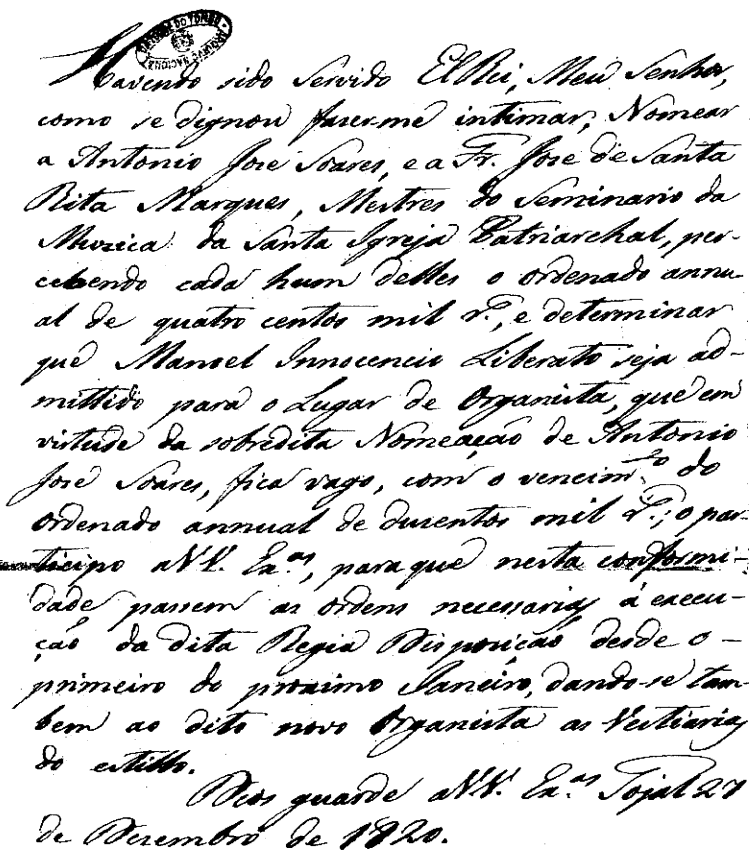 Havendo sido Servido ElRei, Meu Senhor,
como se dignou fazer-me intimar, Nomear
a Antonio José Soares, e a Fr. José de Santa
Rita Marques, Mestres do Seminario da
Muzica da Santa Igreja Patriarchal, per-
cebendo cada hum delles o ordenado annu-
al de quatro centos mil r.s, e determinar
que Manoel Innocencio Liberato seja ad-
mittido para o Lugar de Organista, que em
virtude da sobredita Nomeação de Antonio
José Soares, fica vago, com o vencim.to do
Ordenado annual de duzentos mil r.s; o par-
ticipo a VV. Ex.as, para que nesta conformi-
dade passem as ordens necessarias á execu-
ção da dita Regia Disposição desde o
primeiro do proximo Janeiro, dando-se tam-
bem ao dito novo Organista as Vestiarias
do estillo.
Deos guarde a VV. Ex.as Tojal 27
de Dezembro de 1820.